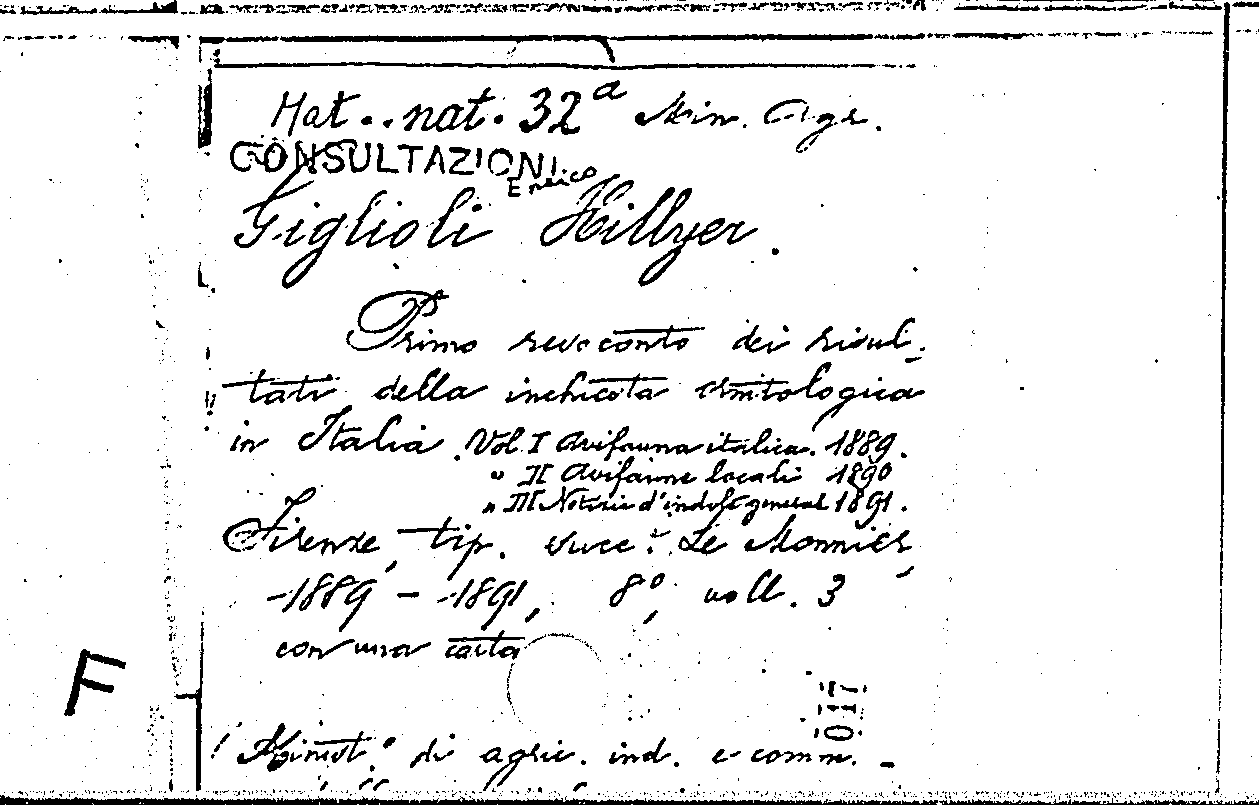 Hat. nat. 32a Min. Agr.
CONSULTAZIONI
Enrico
Giglioli Hillyer.
Primo resoconto dei risul-
tati della inchiesta ornitologica
in Italia. Vol. I Avifauna italica. 1889.
" II Avifaune locali 1890
" III Notizie d'indole general 1891.
Firenze, tip. succ.i Le Monnier,
1889 - 1891, 8°, voll. 3
con una carta
017
Minist.° di agric. ind. e comm. -
F